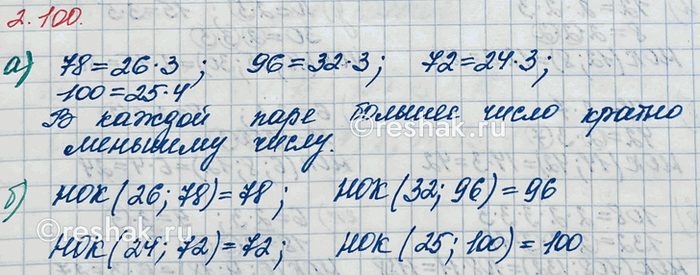 2.100.
а) 78=26·3; 96=32·3; 72=24·3;
100=25·4
В каждой паре большее число кратно
меньшему числу.
©reshak.ru
б) НОК(26; 78)=78; НОК(32; 96)=96
НОК(24; 72)=72; НОК(25; 100)=100
©reshak.ru